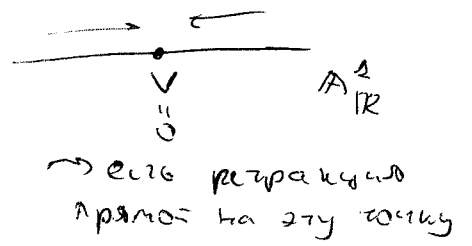 𝔸¹_ℝ
V
=
0
⇝ есть ретракция
прямой на эту точку